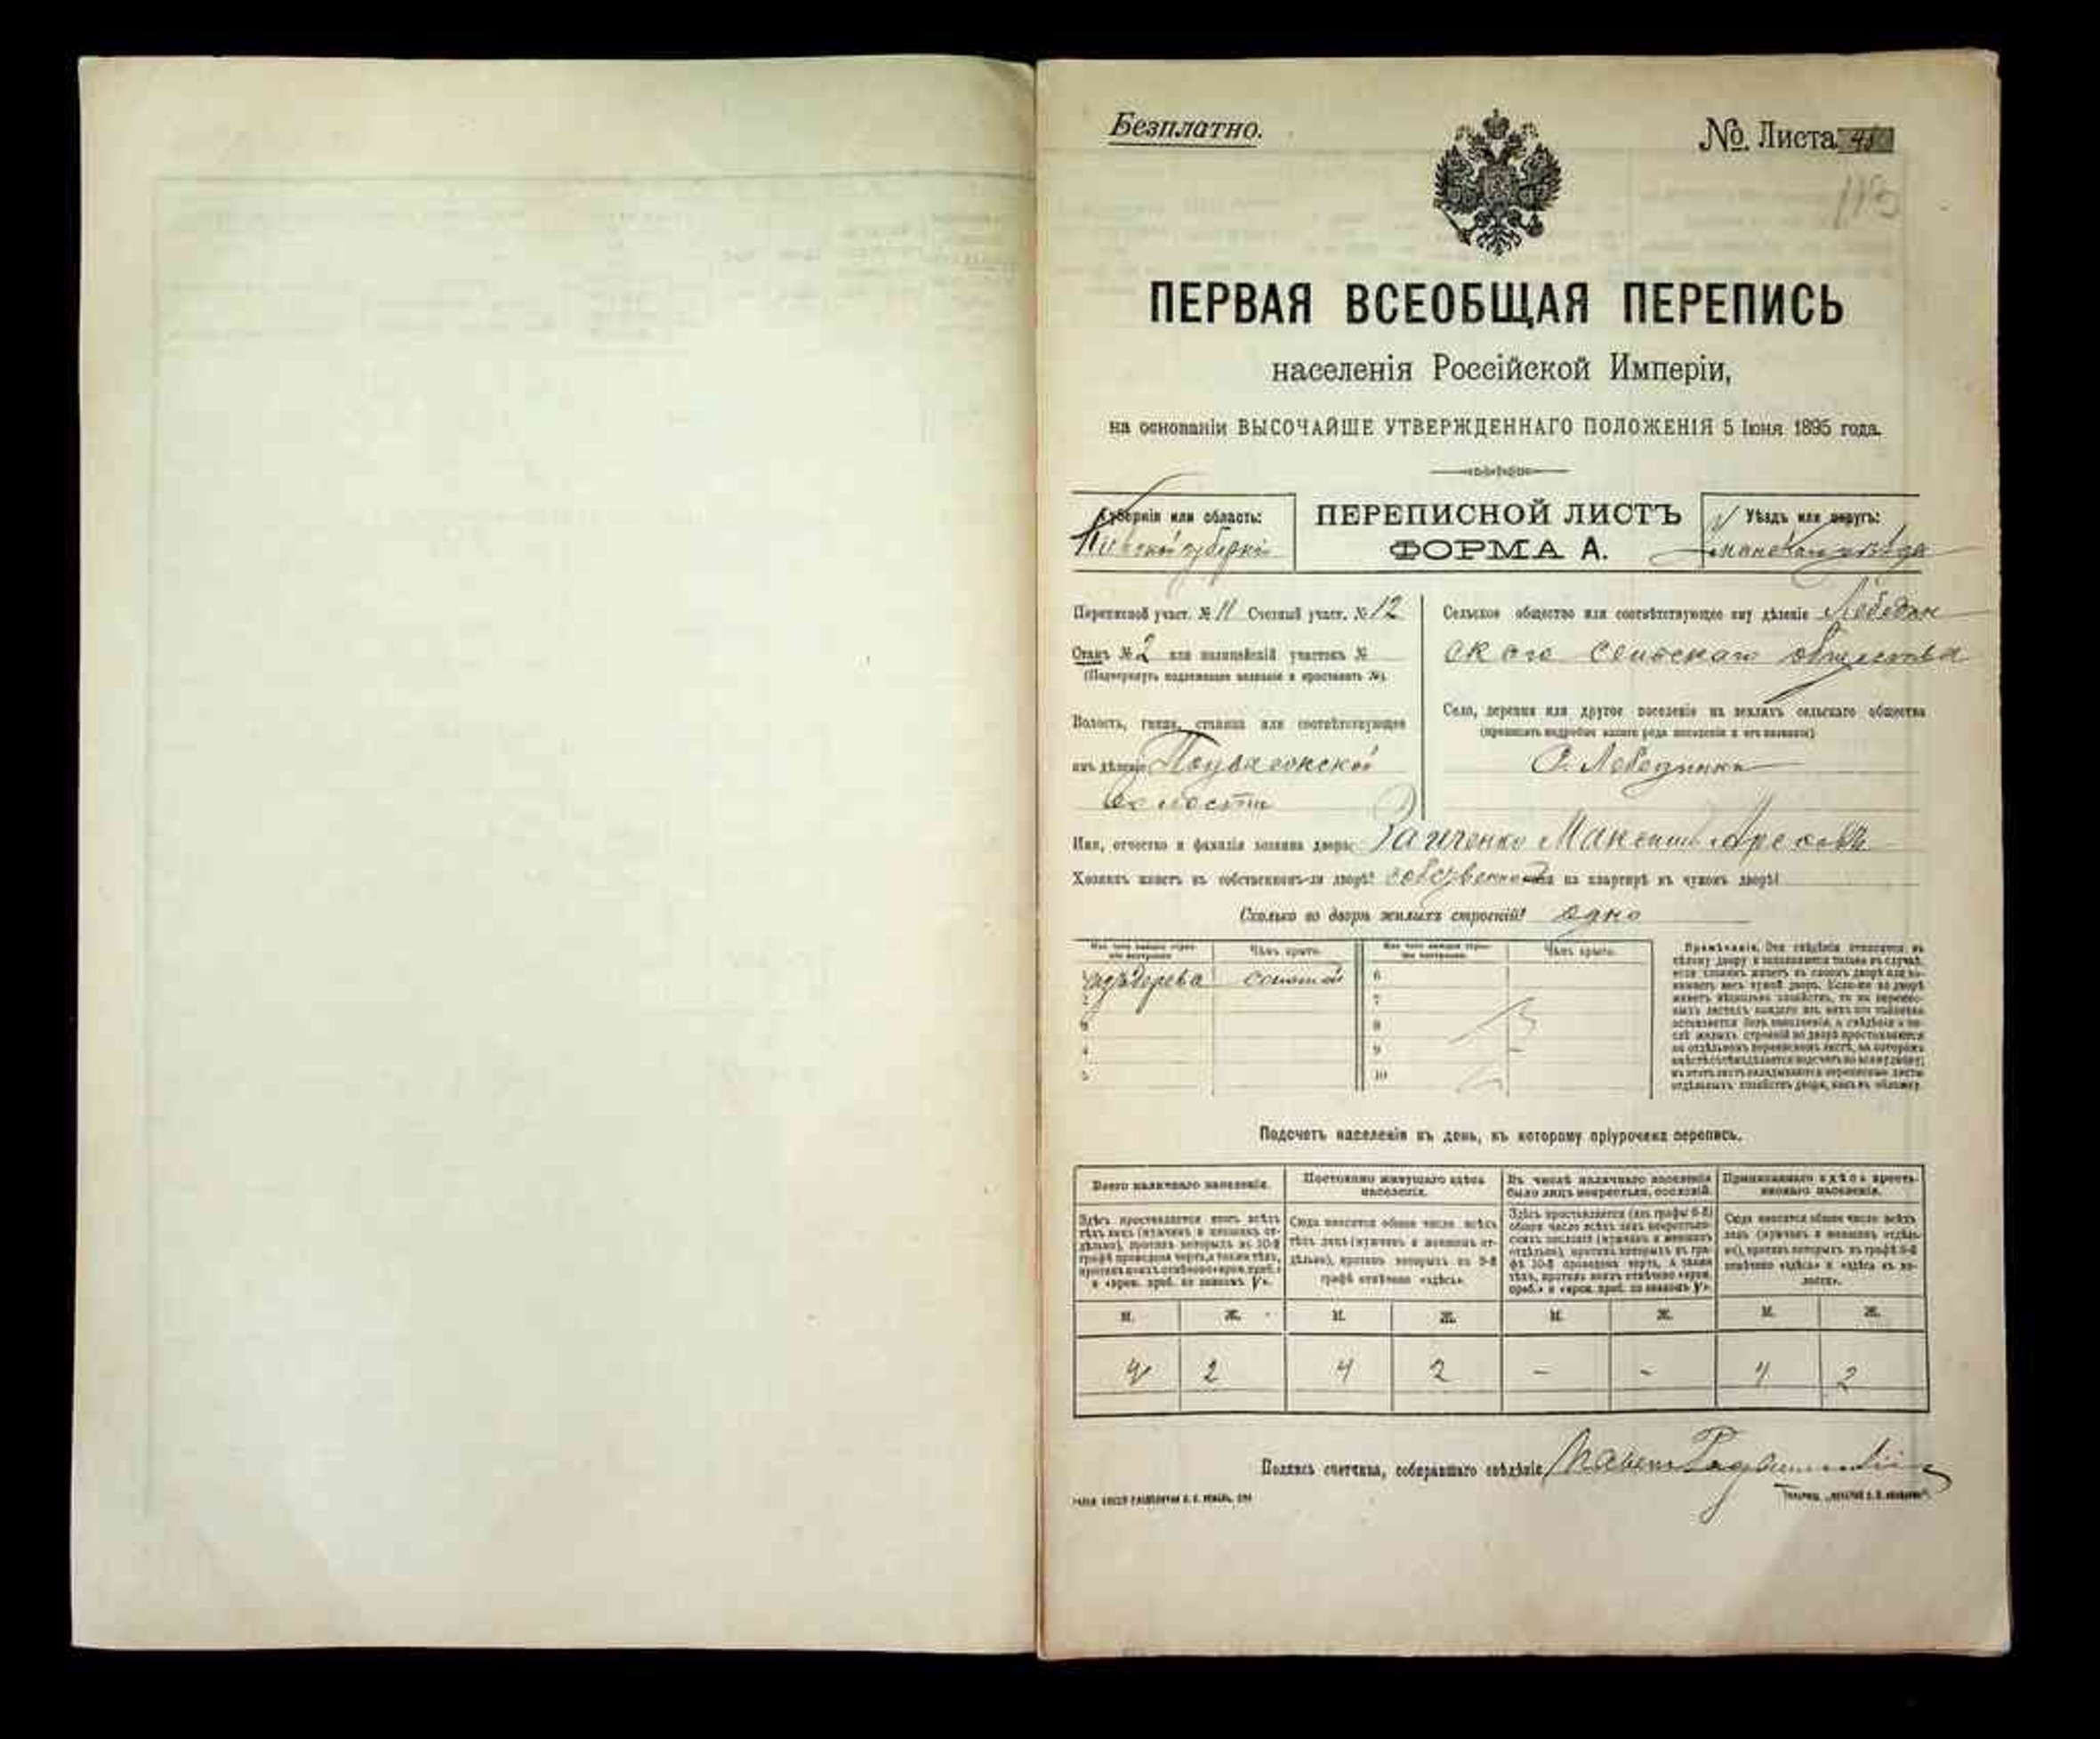 Безплатно.
№. Листа 48
ПЕРВАЯ ВСЕОБЩАЯ ПЕРЕПИСЬ
населенія Россійской Имперіи,
на основаніи ВЫСОЧАЙШЕ УТВЕРЖДЕННАГО ПОЛОЖЕНІЯ 5 Іюня 1895 года.
Губернія или область:
Кіевской губерніи
ПЕРЕПИСНОЙ ЛИСТЪ
ФОРМА А.
Уѣздъ или округъ:
Уманскаго уѣзда
Переписной участ. № 11 Счетный участ. № 12
Станъ № 2 или полицейскій участокъ №
(Подчеркнуть надлежащее названіе и проставить №).
Волость, гмина, станица или соотвѣтствующее
имъ дѣленіе
волости
Сельское общество или соотвѣтствующее ему дѣленіе Лебедин
скаго сельскаго общества
Село, деревня или другое поселеніе на земляхъ сельскаго общества
(прописать подробно какого рода поселеніе и его названіе)
Имя, отчество и фамилія хозяина двора: Заиченко Максимъ
Хозяинъ живетъ въ собственномъ-ли дворѣ? или на квартирѣ въ чужомъ дворѣ?
Сколько во дворѣ жилыхъ строеній? одно
Изъ чего каждое строе-
ніе построено
Чѣмъ крыто.
Изъ чего каждое строе-
ніе построено
Чѣмъ крыто.
изъ дерева соломой 6
2 7
3 8
4 9
5 10
Примѣчаніе. Эти свѣдѣнія относятся къ
цѣлому двору и заполняются только въ случаѣ,
если хозяинъ живетъ въ своемъ дворѣ или за-
нимаетъ весь чужой дворъ. Если-же во дворѣ
живетъ нѣсколько хозяйствъ, то на перепис-
ныхъ листахъ каждаго изъ нихъ эта табличка
оставляется безъ заполненія, а свѣдѣнія о чи-
слѣ жилыхъ строеній во дворѣ проставляются
на отдѣльномъ переписномъ листѣ, на которомъ
въ этотъ листъ вкладываются переписные листы
отдѣльныхъ хозяйствъ двора, какъ въ обложку.
Подсчетъ населенія въ день, къ которому пріурочена перепись.
Всего наличнаго населенія.
Постоянно живущаго здѣсь
населенія.
Въ числѣ наличнаго населенія
было лицъ некрестьян. сословій.
Приписаннаго здѣсь кресть-
янскаго населенія.
Здѣсь проставляется итогъ всѣхъ
тѣхъ лицъ (мужчинъ и женщинъ от-
дѣльно), противъ которыхъ въ 10-й
графѣ проведена черта, а также тѣхъ,
противъ коихъ отмѣчено «врем. преб.»
и «врем. преб. со знакомъ V».
Сюда вносится общее число всѣхъ
тѣхъ лицъ (мужчинъ и женщинъ от-
дѣльно), противъ которыхъ въ 9-й
графѣ отмѣчено «здѣсь».
Здѣсь проставляется (изъ графы 6-й)
общее число всѣхъ лицъ некрестьян-
скихъ сословій (мужчинъ и женщинъ
отдѣльно), противъ которыхъ въ гра-
фѣ 10-й проведена черта, а также
тѣхъ, противъ коихъ отмѣчено «врем.
преб.» и «врем. преб. со знакомъ V».
Сюда вносится общее число всѣхъ
лицъ (мужчинъ и женщинъ отдѣль-
но), противъ которыхъ въ графѣ 8-й
отмѣчено «здѣсь» и «здѣсь въ во-
лости».
М. Ж. М. Ж. М. Ж. М. Ж.
4 2 4 2 - - 4 2
Подпись счетчика, собиравшаго свѣдѣнія